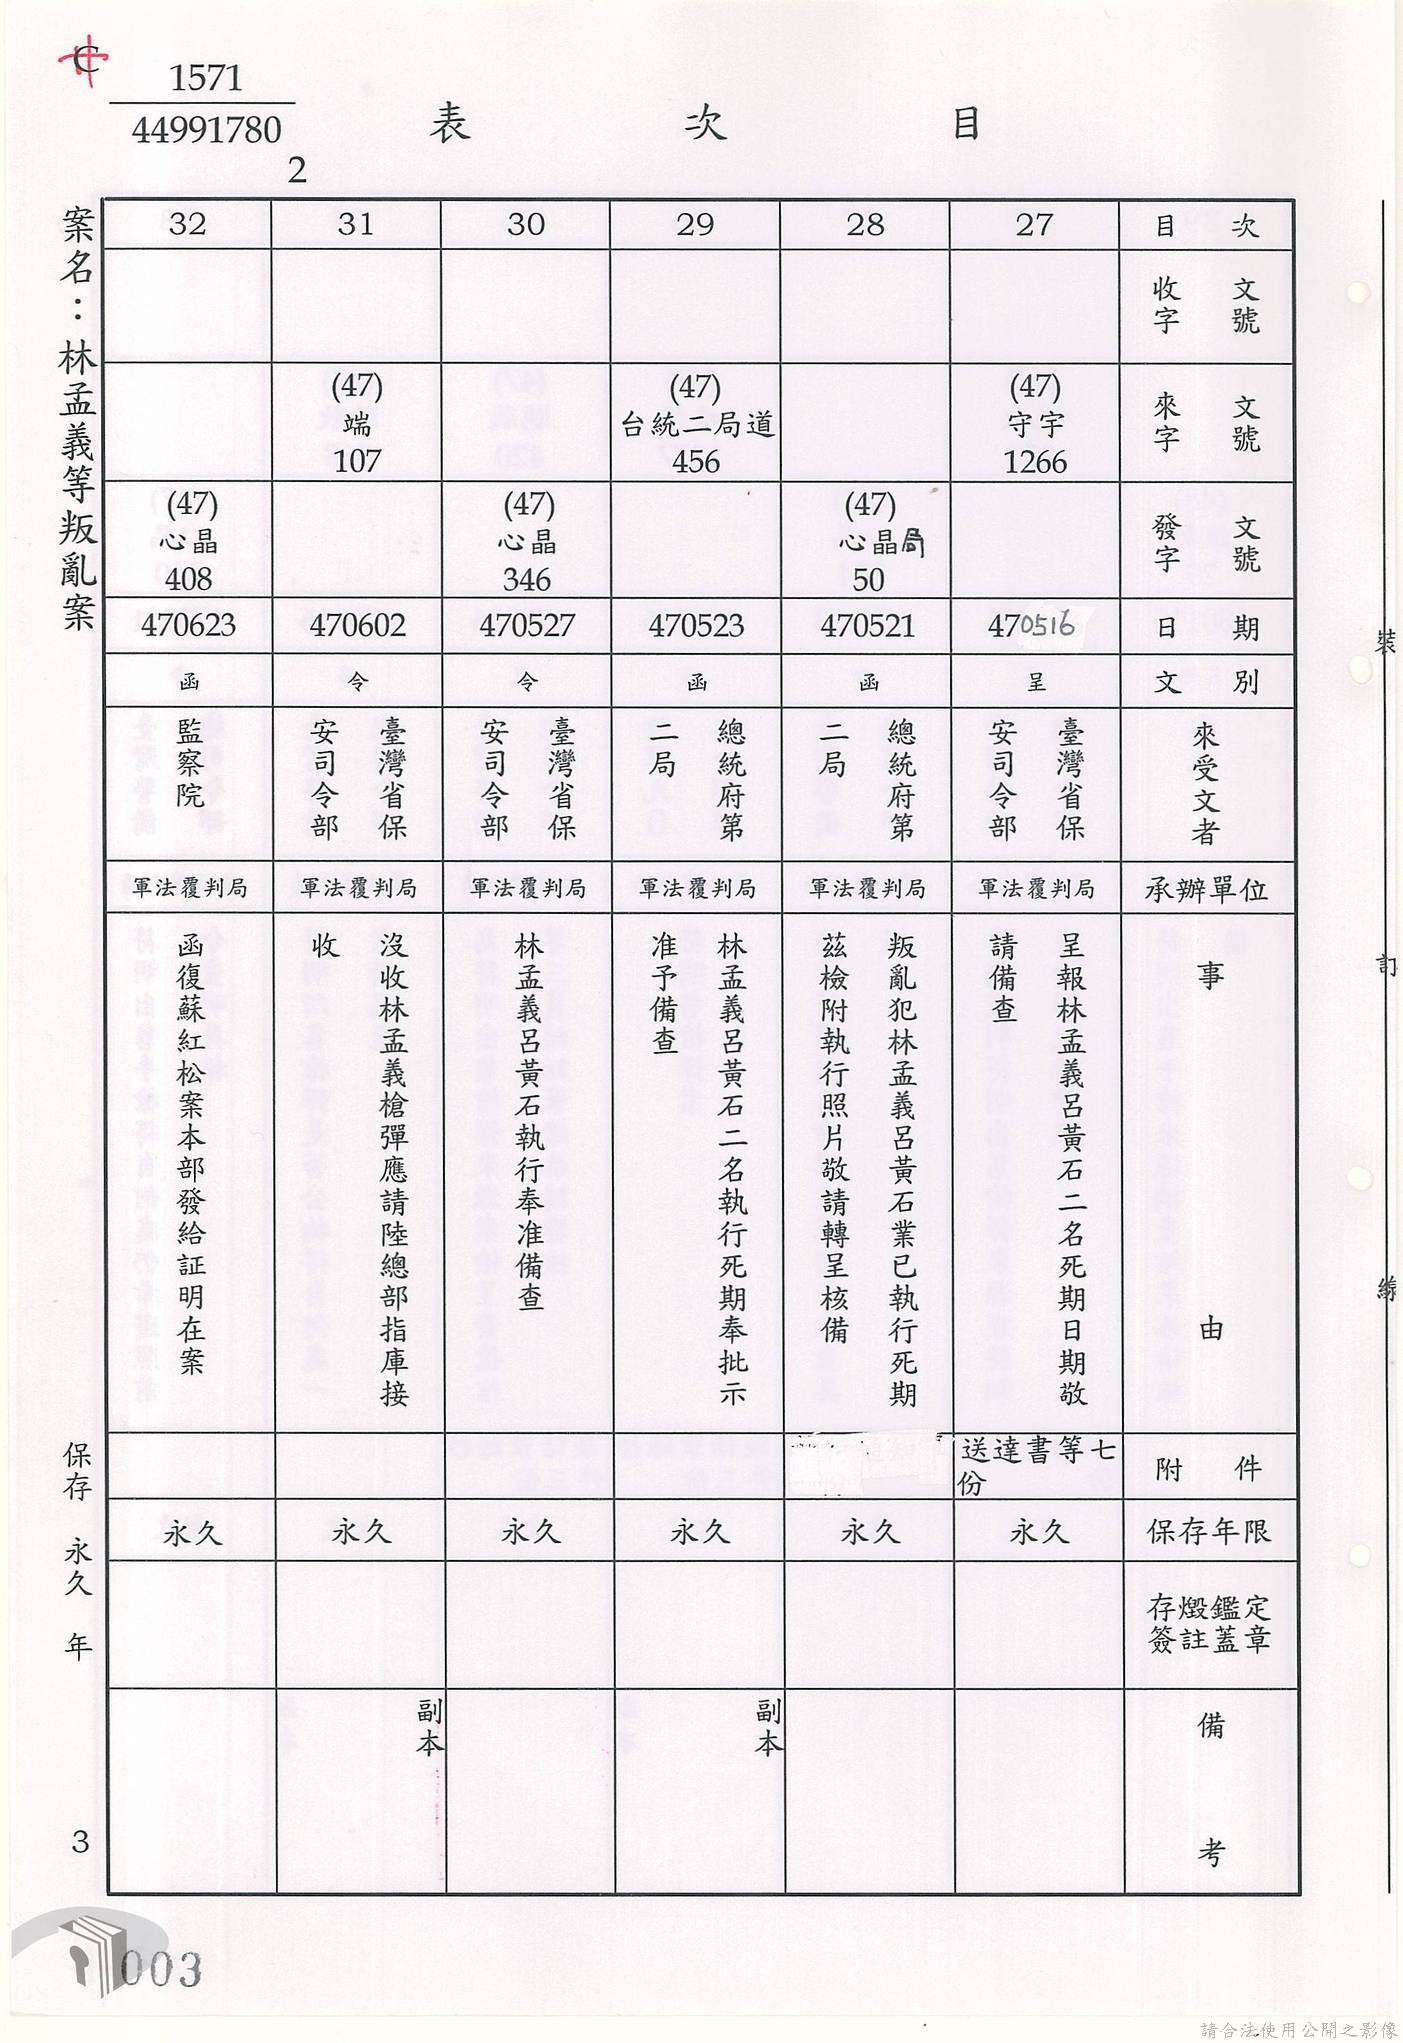 C
1571
44991780
2
目次表
案名：林孟義等叛亂案
目次 27 28 29 30 31 32
收文字號
來文字號
(47)
守宇
1266
(47)
台統二局道
456
(47)
端
107
發文字號
(47)
心晶局
50
(47)
心晶
346
(47)
心晶
408
日期 470516 470521 470523 470527 470602 470623
文別 呈 函 函 令 令 函
來受文者
臺灣省保
安司令部
總統府第
二局
總統府第
二局
臺灣省保
安司令部
臺灣省保
安司令部
監察院
承辦單位 軍法覆判局 軍法覆判局 軍法覆判局 軍法覆判局 軍法覆判局 軍法覆判局
事由
呈報林孟義呂黃石二名死期日期敬
請備查
叛亂犯林孟義呂黃石業已執行死期
茲檢附執行照片敬請轉呈核備
林孟義呂黃石二名執行死期奉批示
准予備查
林孟義呂黃石執行奉准備查
沒收林孟義槍彈應請陸總部指庫接
收
函復蘇紅松案本部發給証明在案
附件
送達書等七
份
保存年限 永久 永久 永久 永久 永久 永久
存燬鑑定
簽註蓋章
備考
副本
副本
保存 永久 年
3
裝訂線
003
請合法使用公開之影像